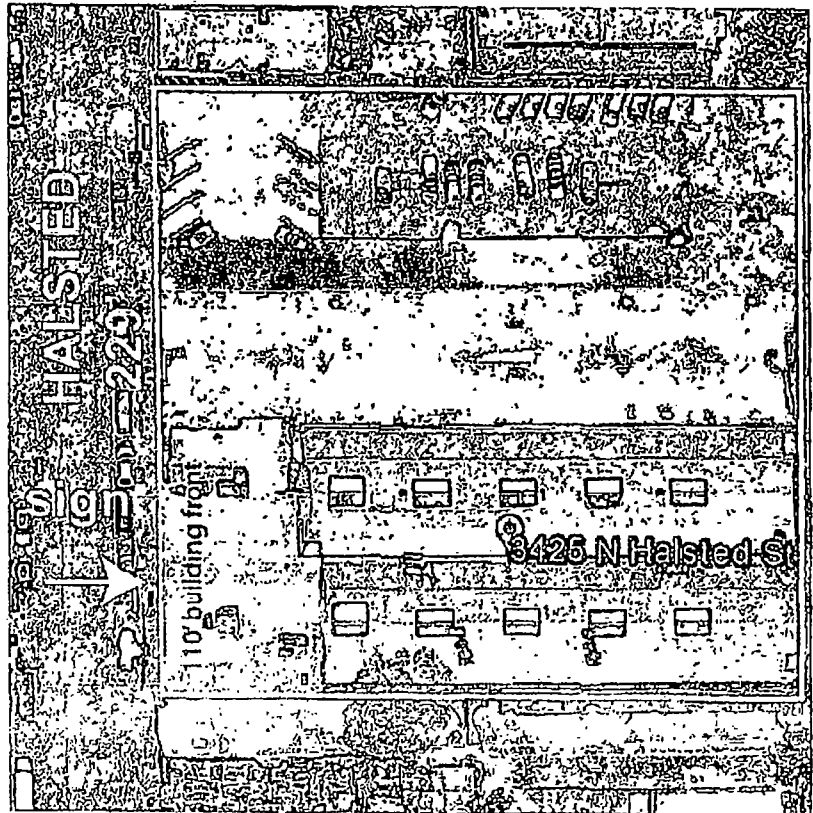 HALSTED
229'
sign
110' building front
3425 N Halsted St